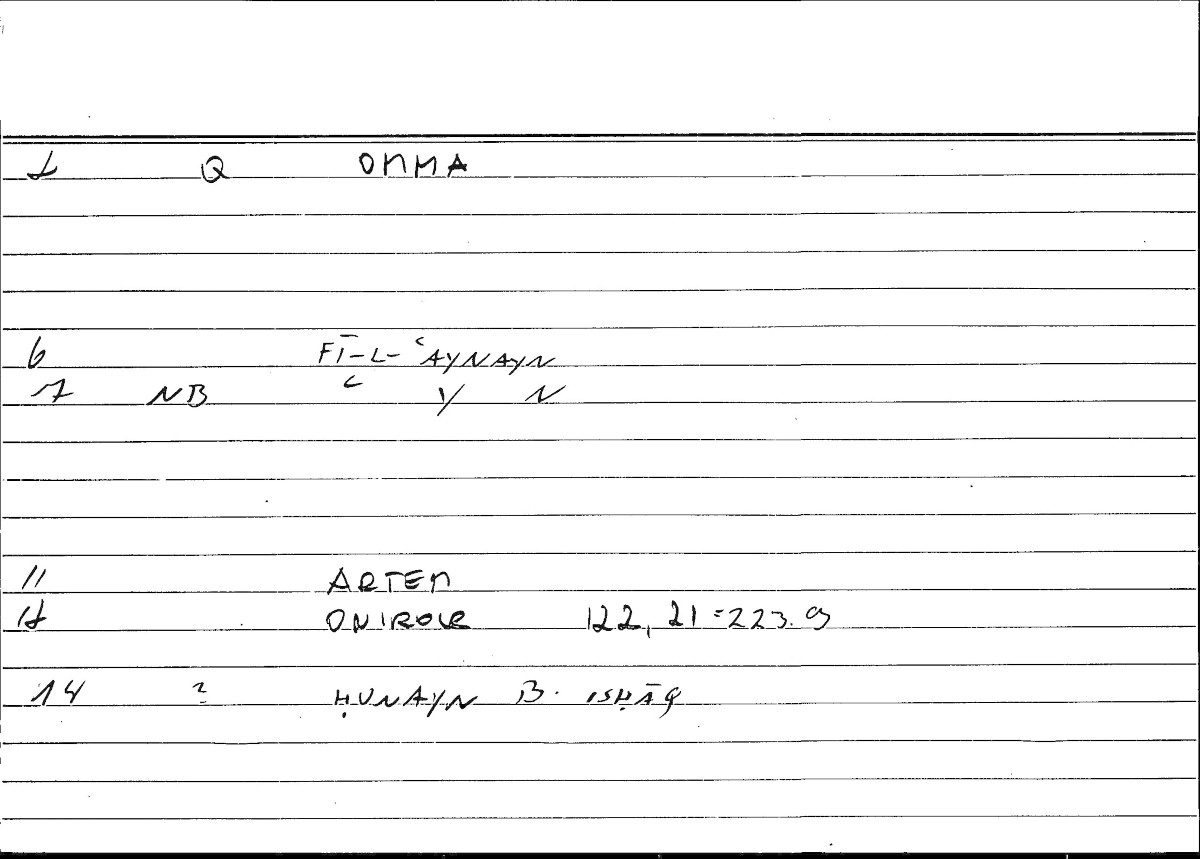 1 Q OMMA
6 FĪ-L-ʿAYNAYN
7 NB ʿ Y N
11 ARTEM
12 ONIROCR 122, 21 = 223.9
14 ? ḤUNAYN B. ISḤĀQ